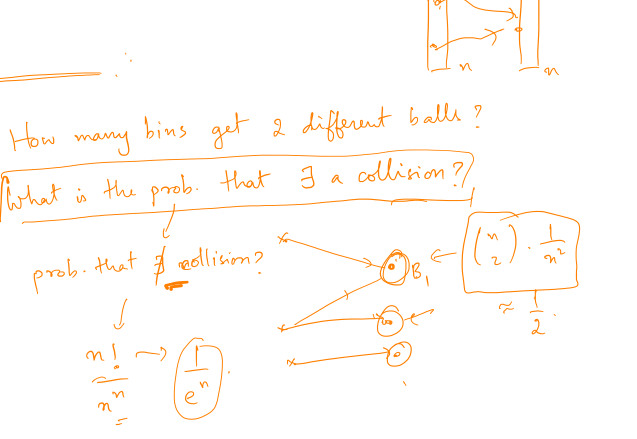 n n
How many bins get 2 different balls?
What is the prob. that ∃ a collision?
prob. that ∄ collision?
B₁ ← (n 2) · 1/n²
≈ 1/2.
n!/nⁿ → 1/eⁿ.